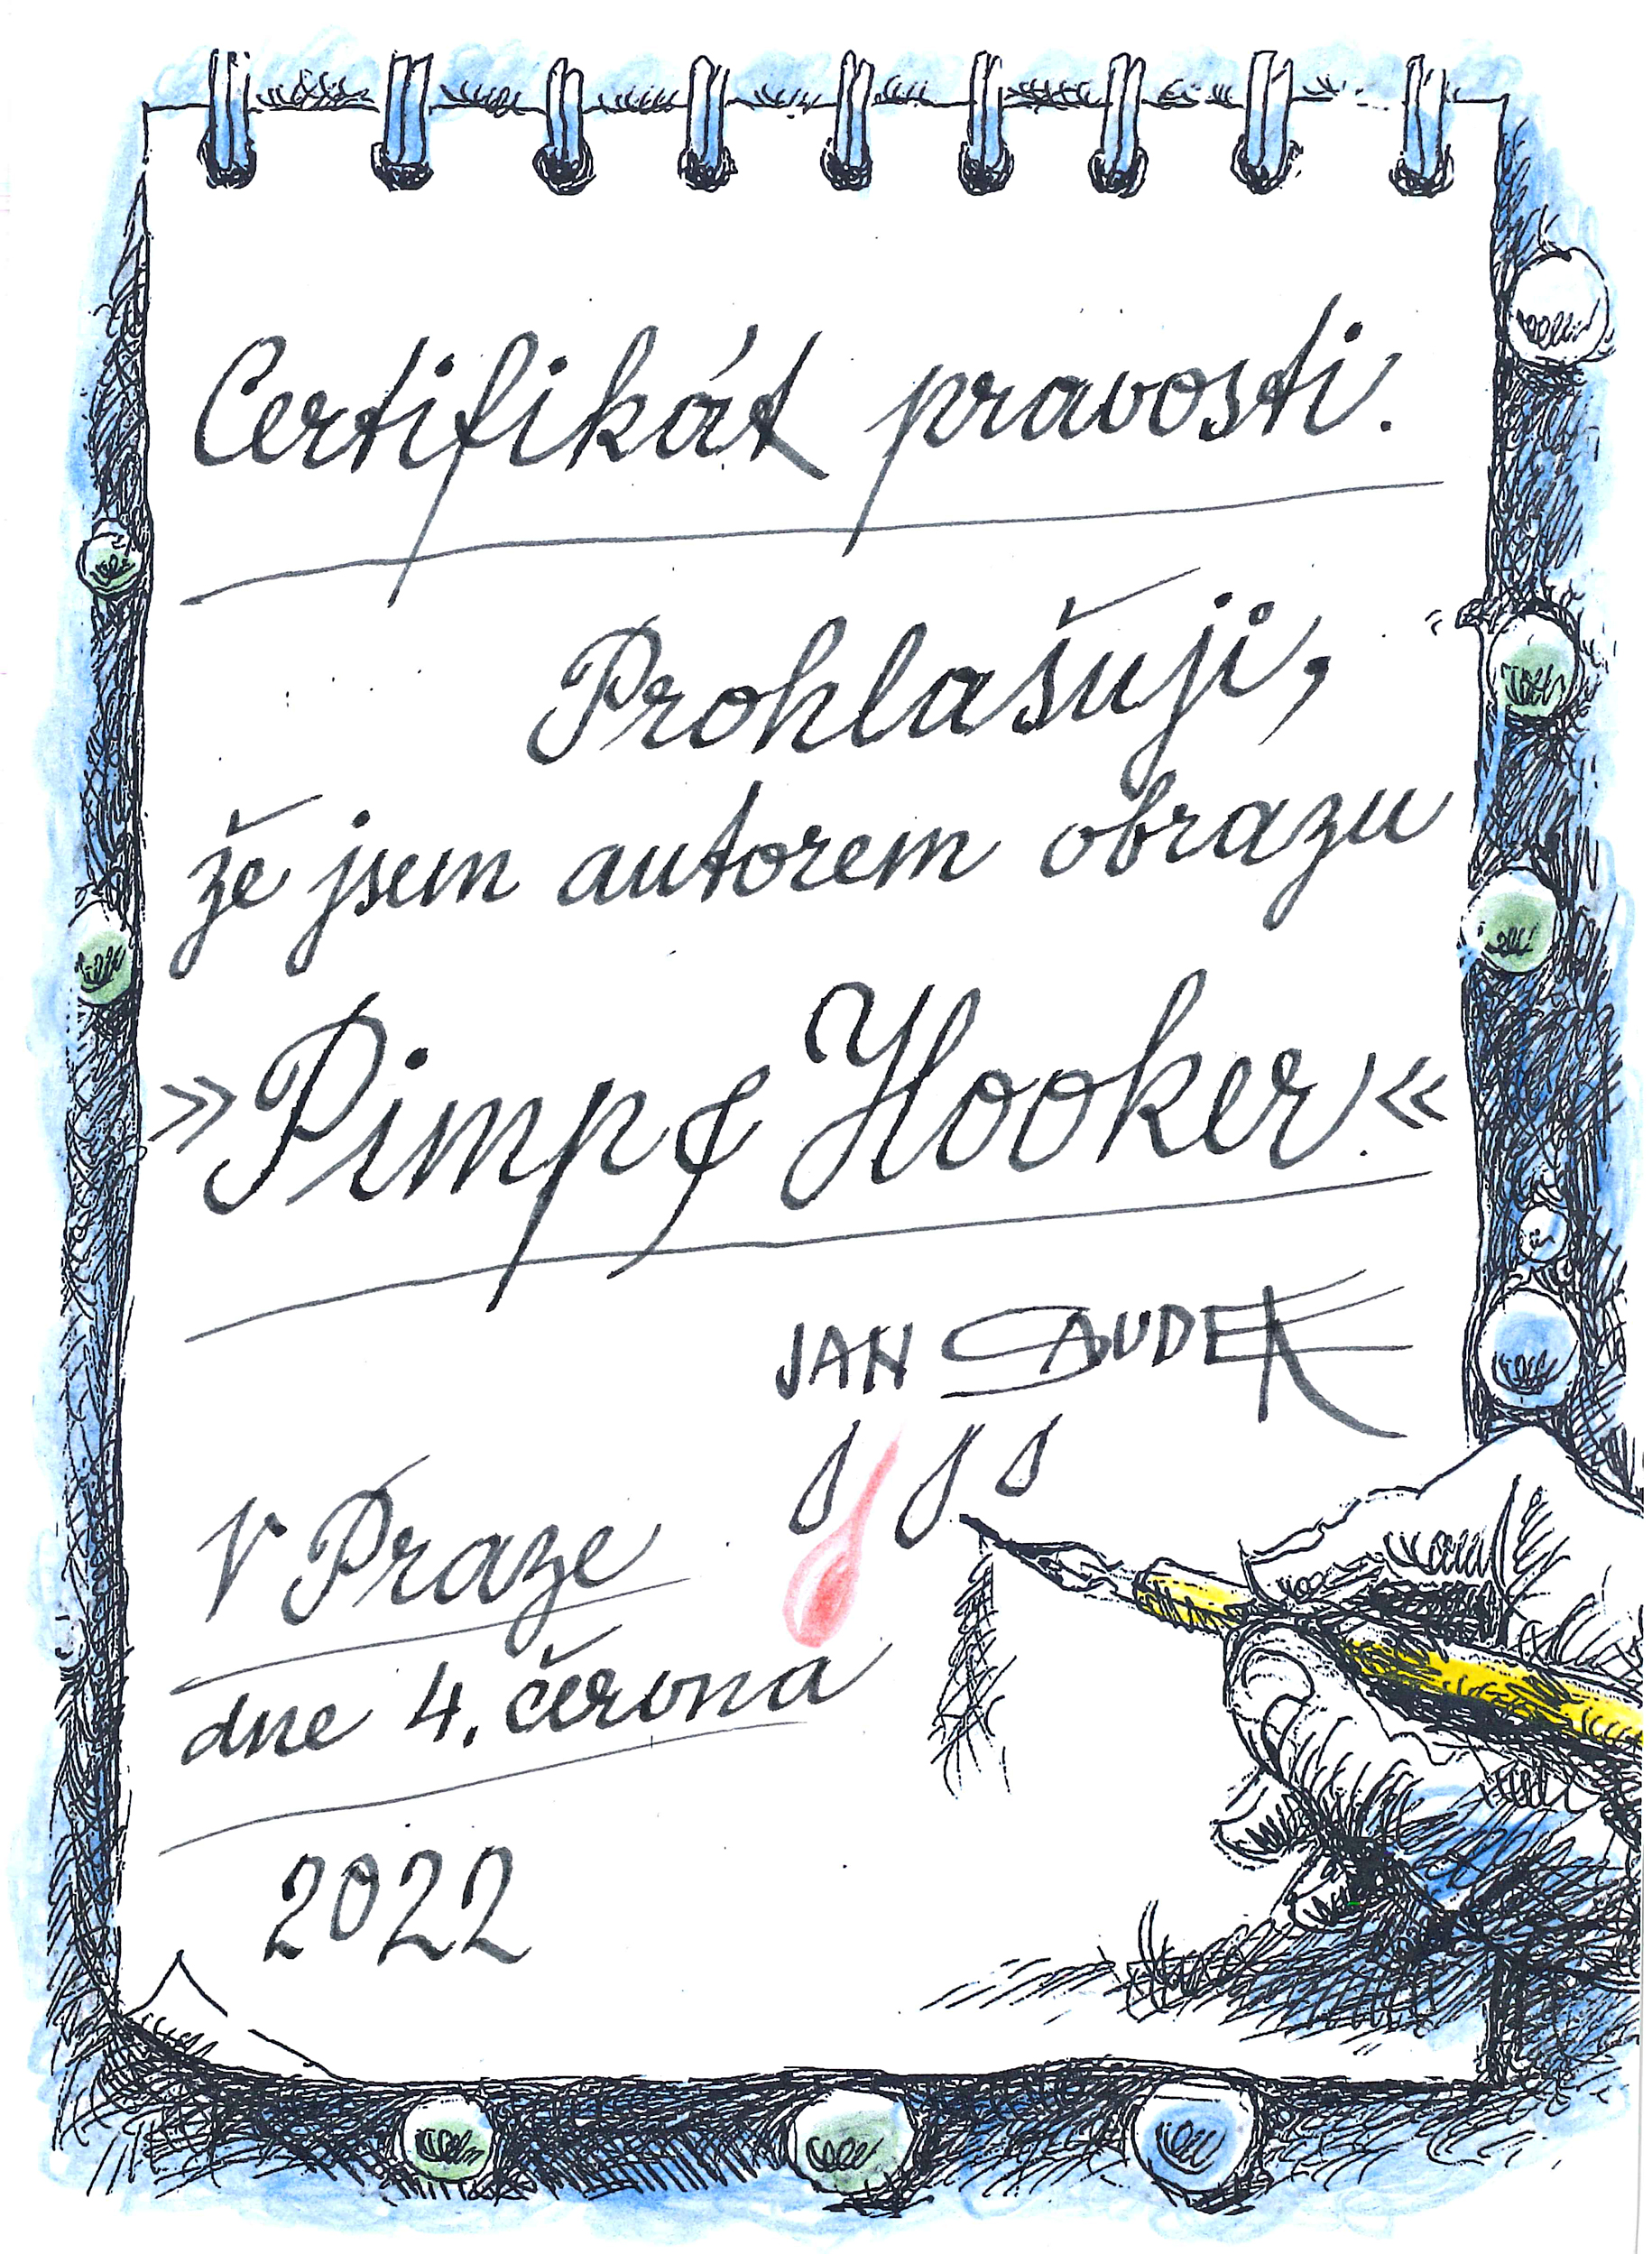 Certifikát pravosti.
Prohlašuji,
že jsem autorem obrazu
»Pimp & Hooker«
JAN SAUDEK
V Praze
dne 4. června
2022